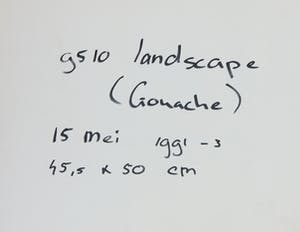 g510 landscape
(Gouache)
15 mei 1991 -3
45,5 x 50 cm